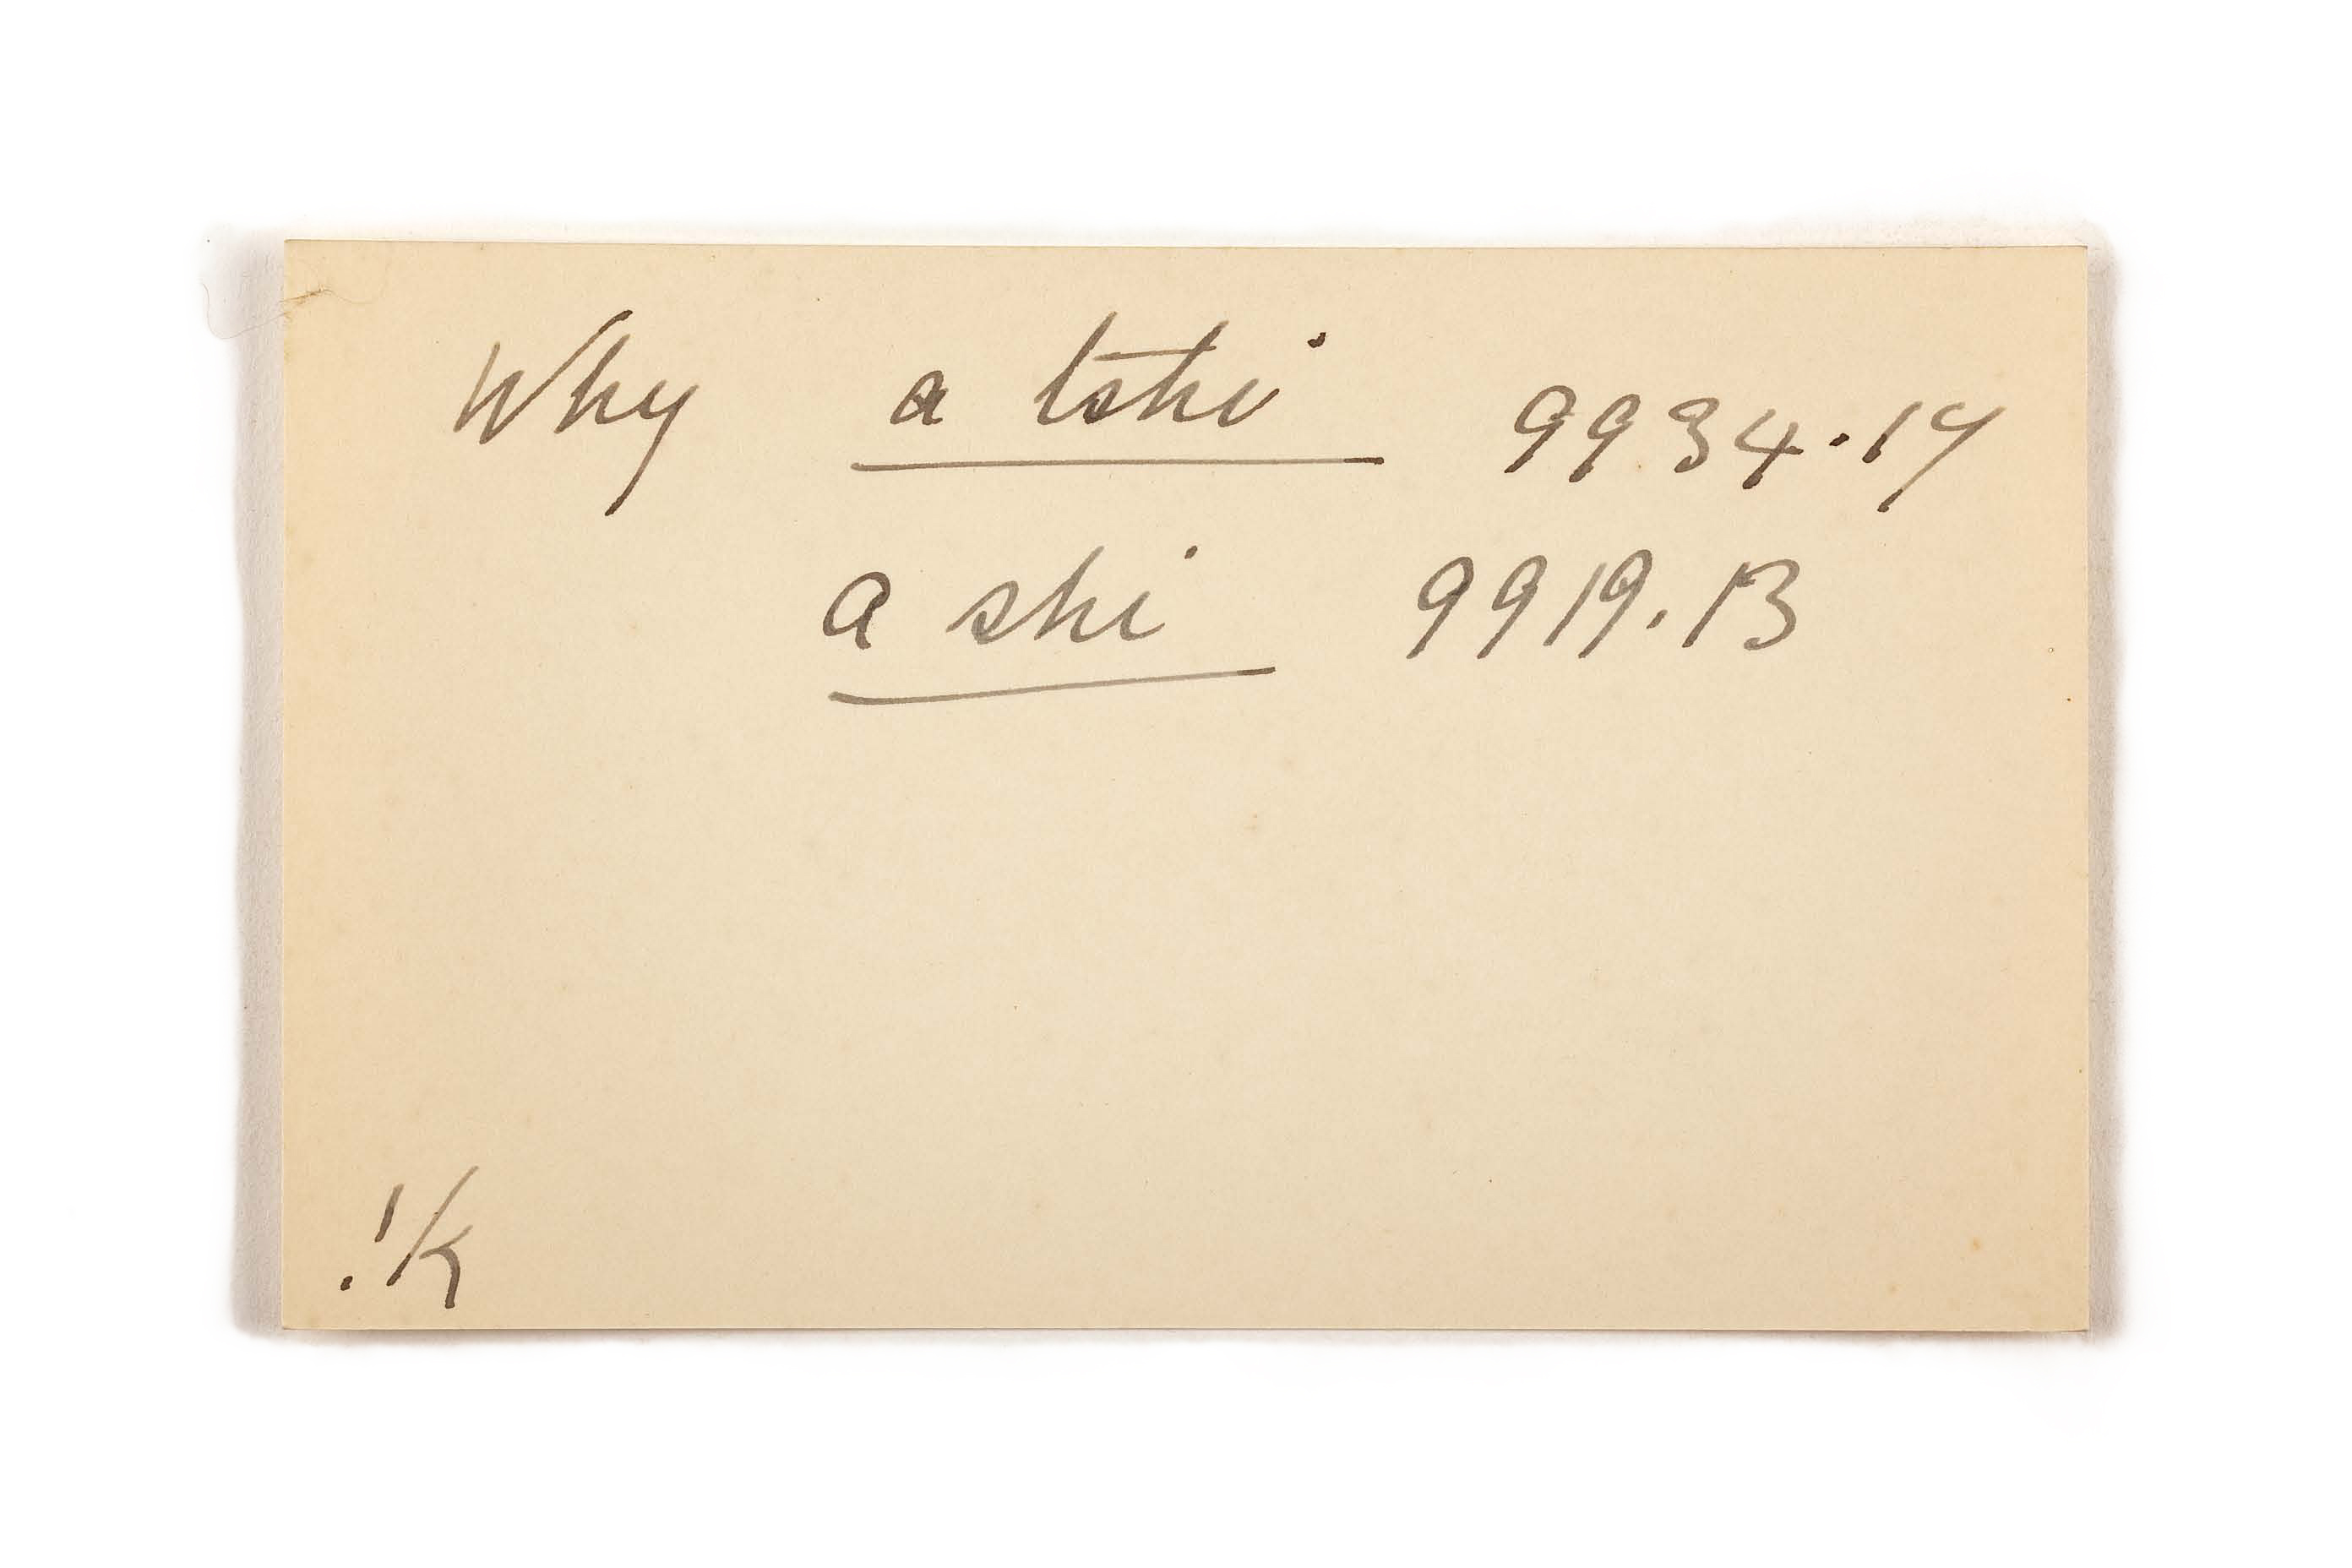 Why a tshi 9934.14
a shi 9919.13
!k